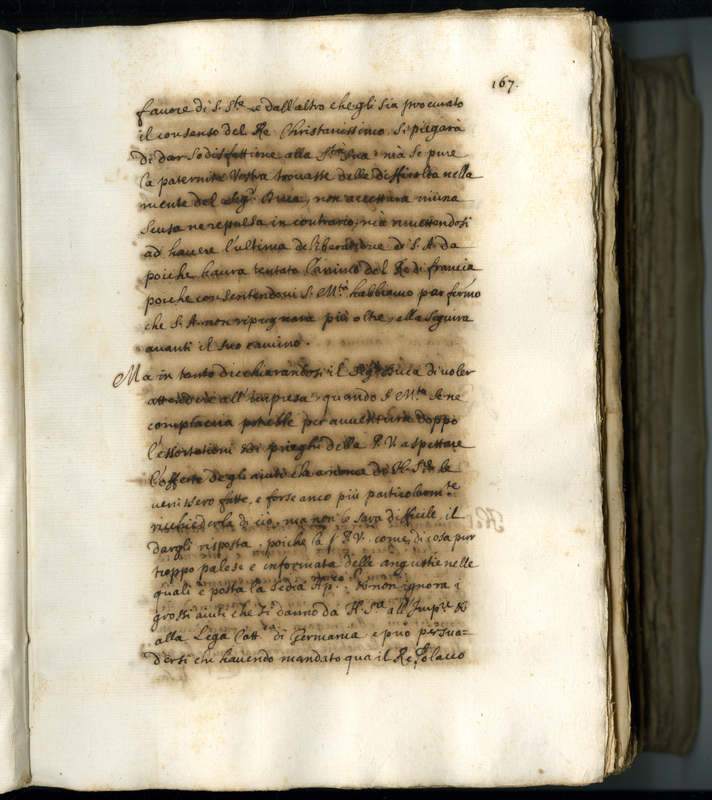 167.
favore di S. S.ta e dall'altro che gli sia procurato
il consenso del Re Christianissimo, si piegarà
di dar sodisfattione alla S.tà Sua: mà se pure
la paternità Vostra trovasse delle difficoltà nella
mente del Sig.r Duca, non accettarà niuna
scusa ne repulsa in contrario, mà rimettendosi
ad havere l'ultima deliberatione di S. A.
poiche haurà tentato l'animo del Re di francia
poiche consentendovi S. M.tà habbiamo per fermo
che S. A. non ripugnarà più oltre, ella seguirà
avanti il suo camino.
Ma in tanto dicchiarandosi il Sig.r Duca di voler
attendere all'impresa, quando S. M.tà se ne
compiaccia potrebbe per avventura doppo
l'essortationi et prieghi della P. V. aspettare
l'offerte degli aiuti che a nome di N. S.re le
venissero fatte, e forse anco più particolarm.te
richiederla di ciò, ma non le sarà difficile, il
dargli risposta, poiche la P. V. come di cosa pur
troppo palese è informata delle angustie nelle
quali è posta la Sedia Ap.ca, et non ignora i
grossi aiuti che si danno da N. S.re all'Imp.re &
alla Lega Catt.ca di Germania e può persua=
dersi che havendo mandato quà il Re Polacco